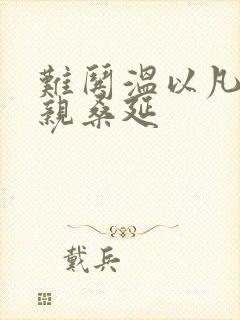 難鬨溫以凡
親桑延
戴兵